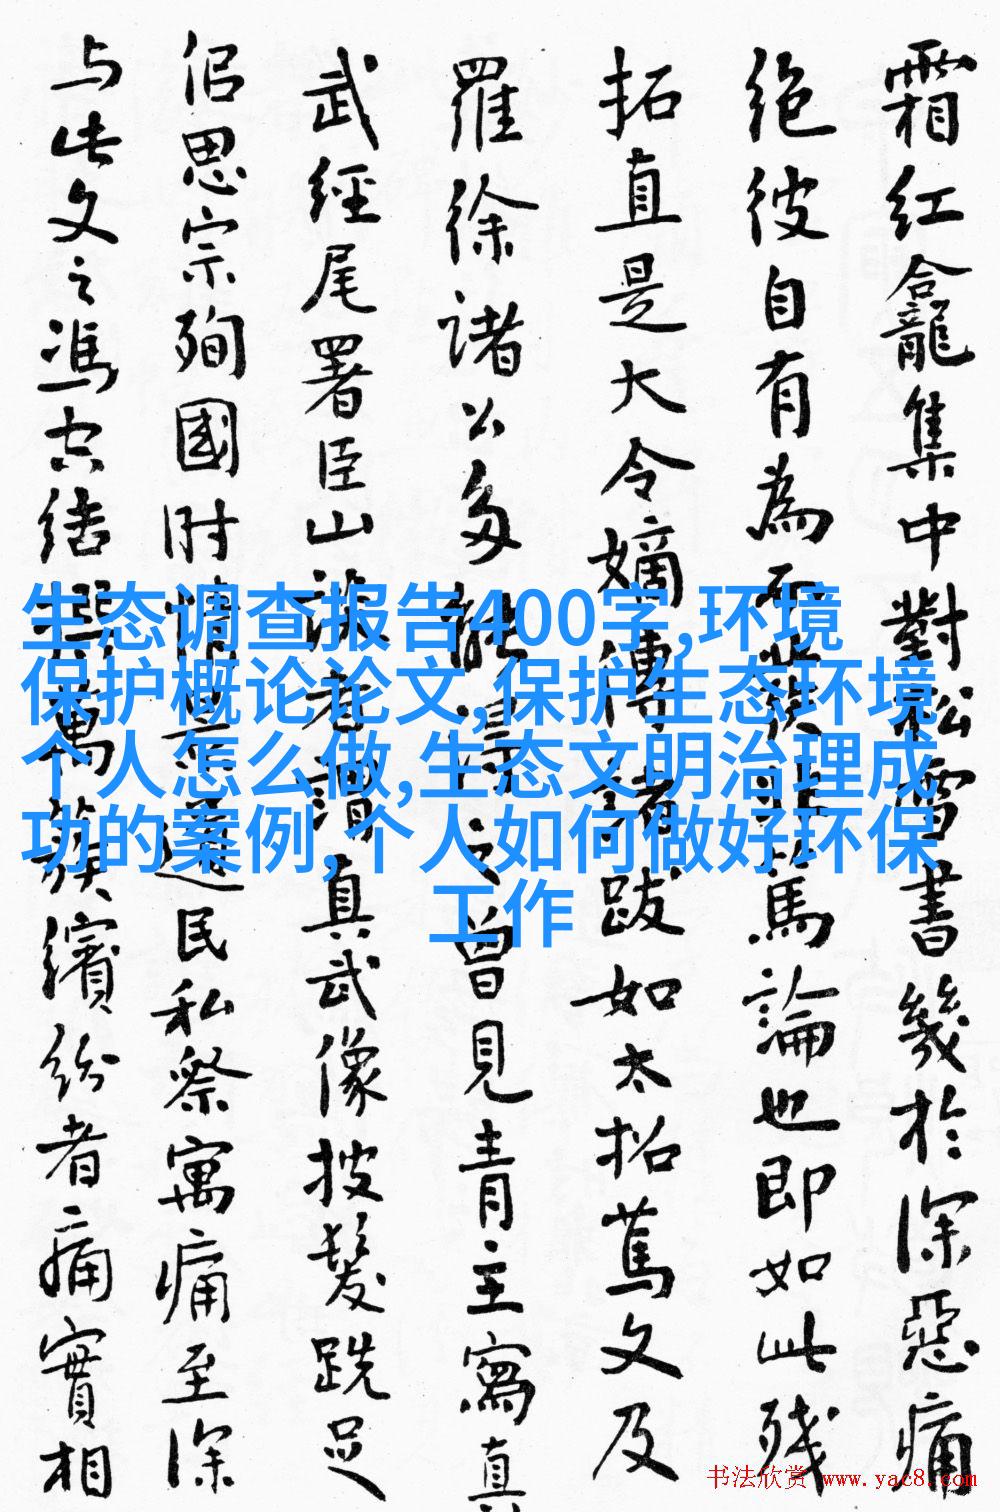 霜红龕集中對松雪書幾於深惡痛
绝彼自有為而發非篤論也即如此残
拓直是大令嫡傳諸跋如太拓篤文及
羅徐諸公多能之曾見青主寫真
武經尾署臣山謂真武像披髮跣足
侣思宗殉國时情遺民私祭寓痛至深
与此文之馮空结撰萬簇繽紛者痛實相
生态调查报告400字,环境
保护概论论文,保护生态环境
个人怎么做,生态文明治理成
功的案例,个人如何做好环保
工作
书法欣赏 www.yac8.com